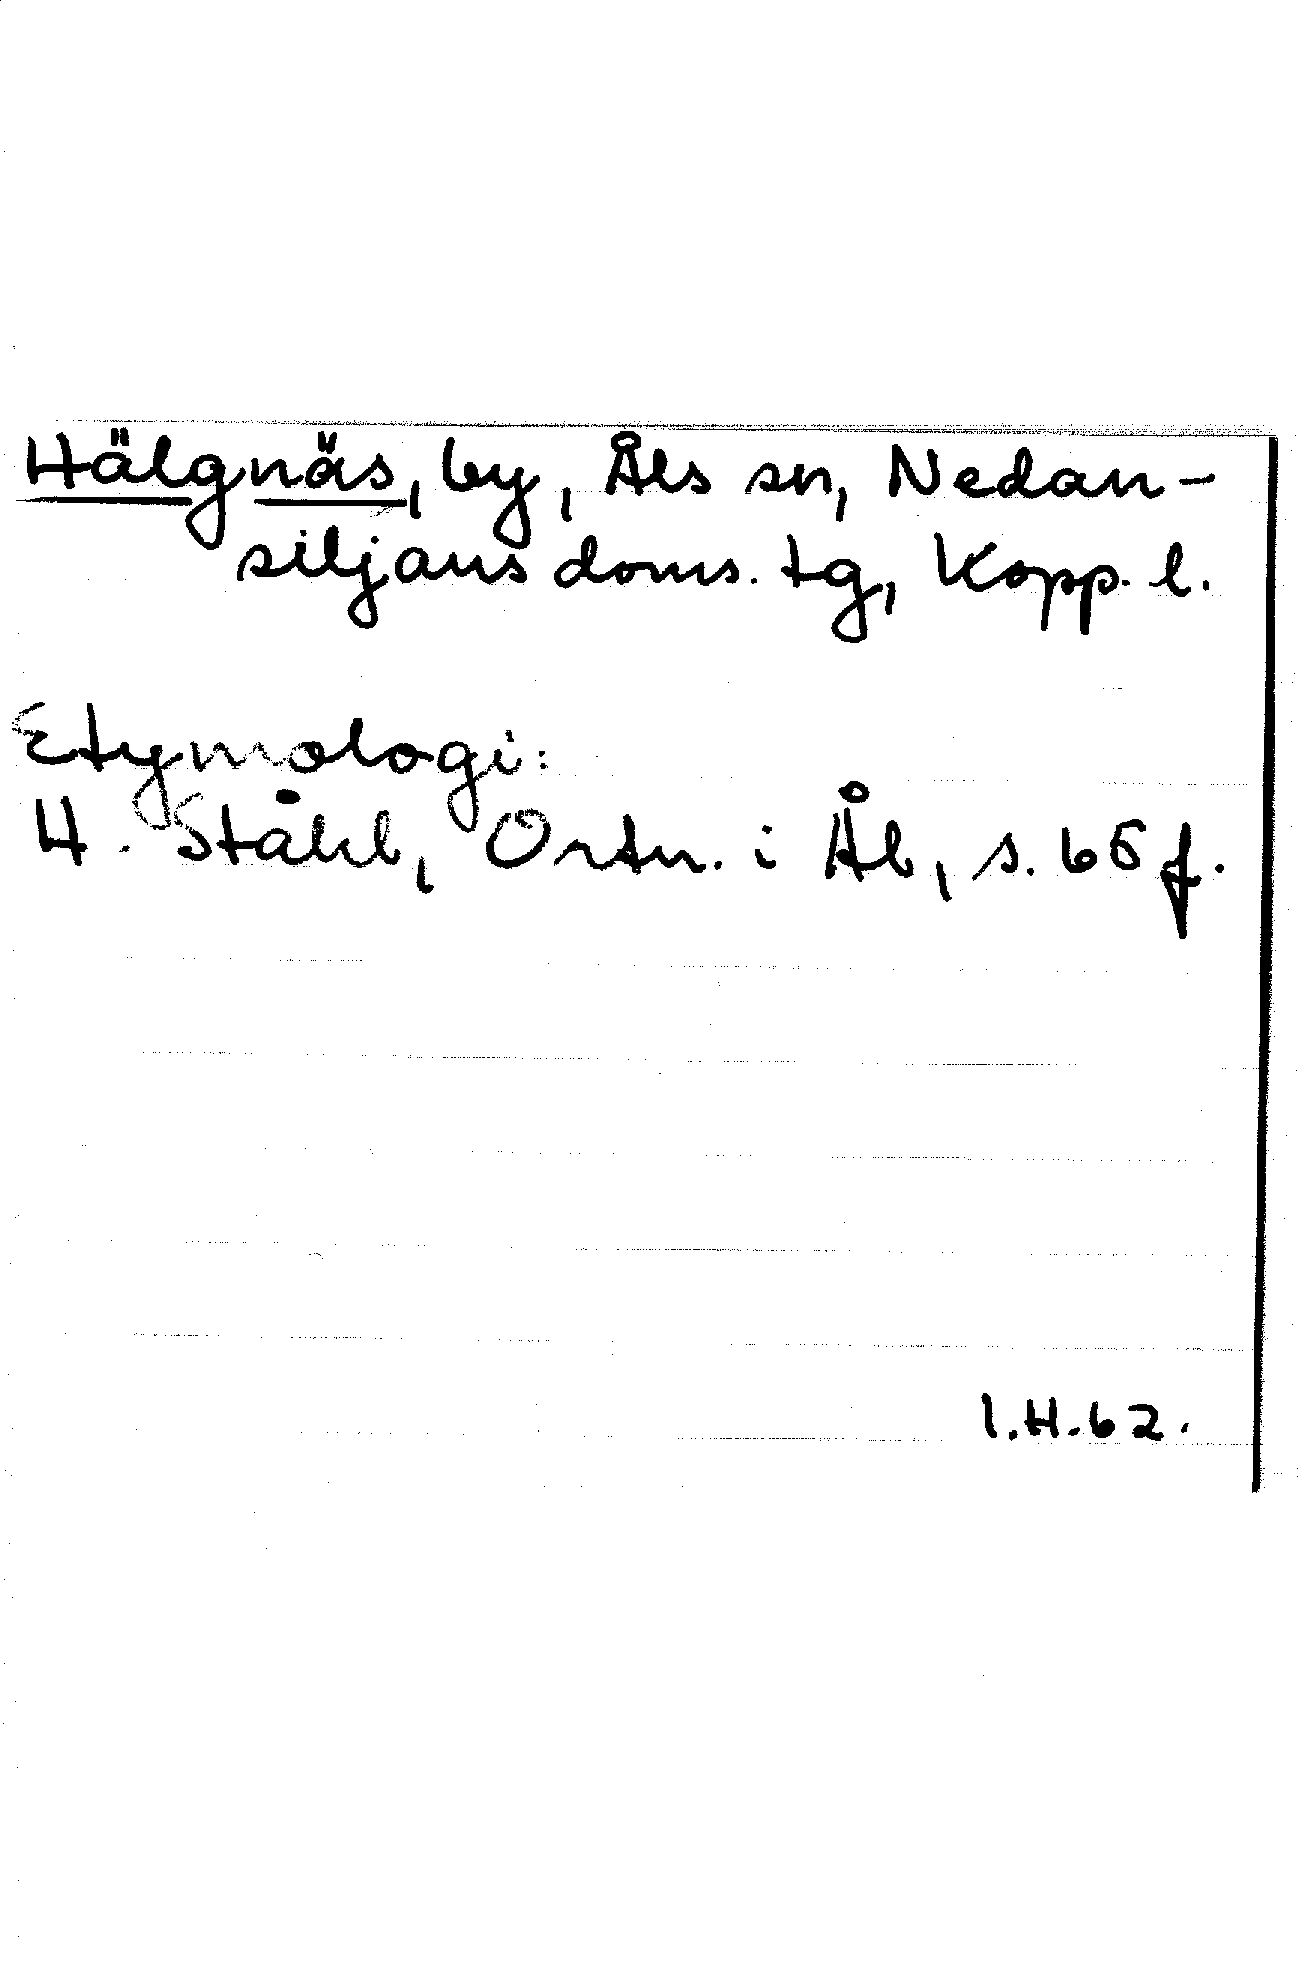 Hälgnäs, by, Åls sn, Nedan-
siljans doms. tg, Kopp. l.
Etymologi:
H. Ståhl, Ortn. i Ål, s. 65 f.
I.H.62.